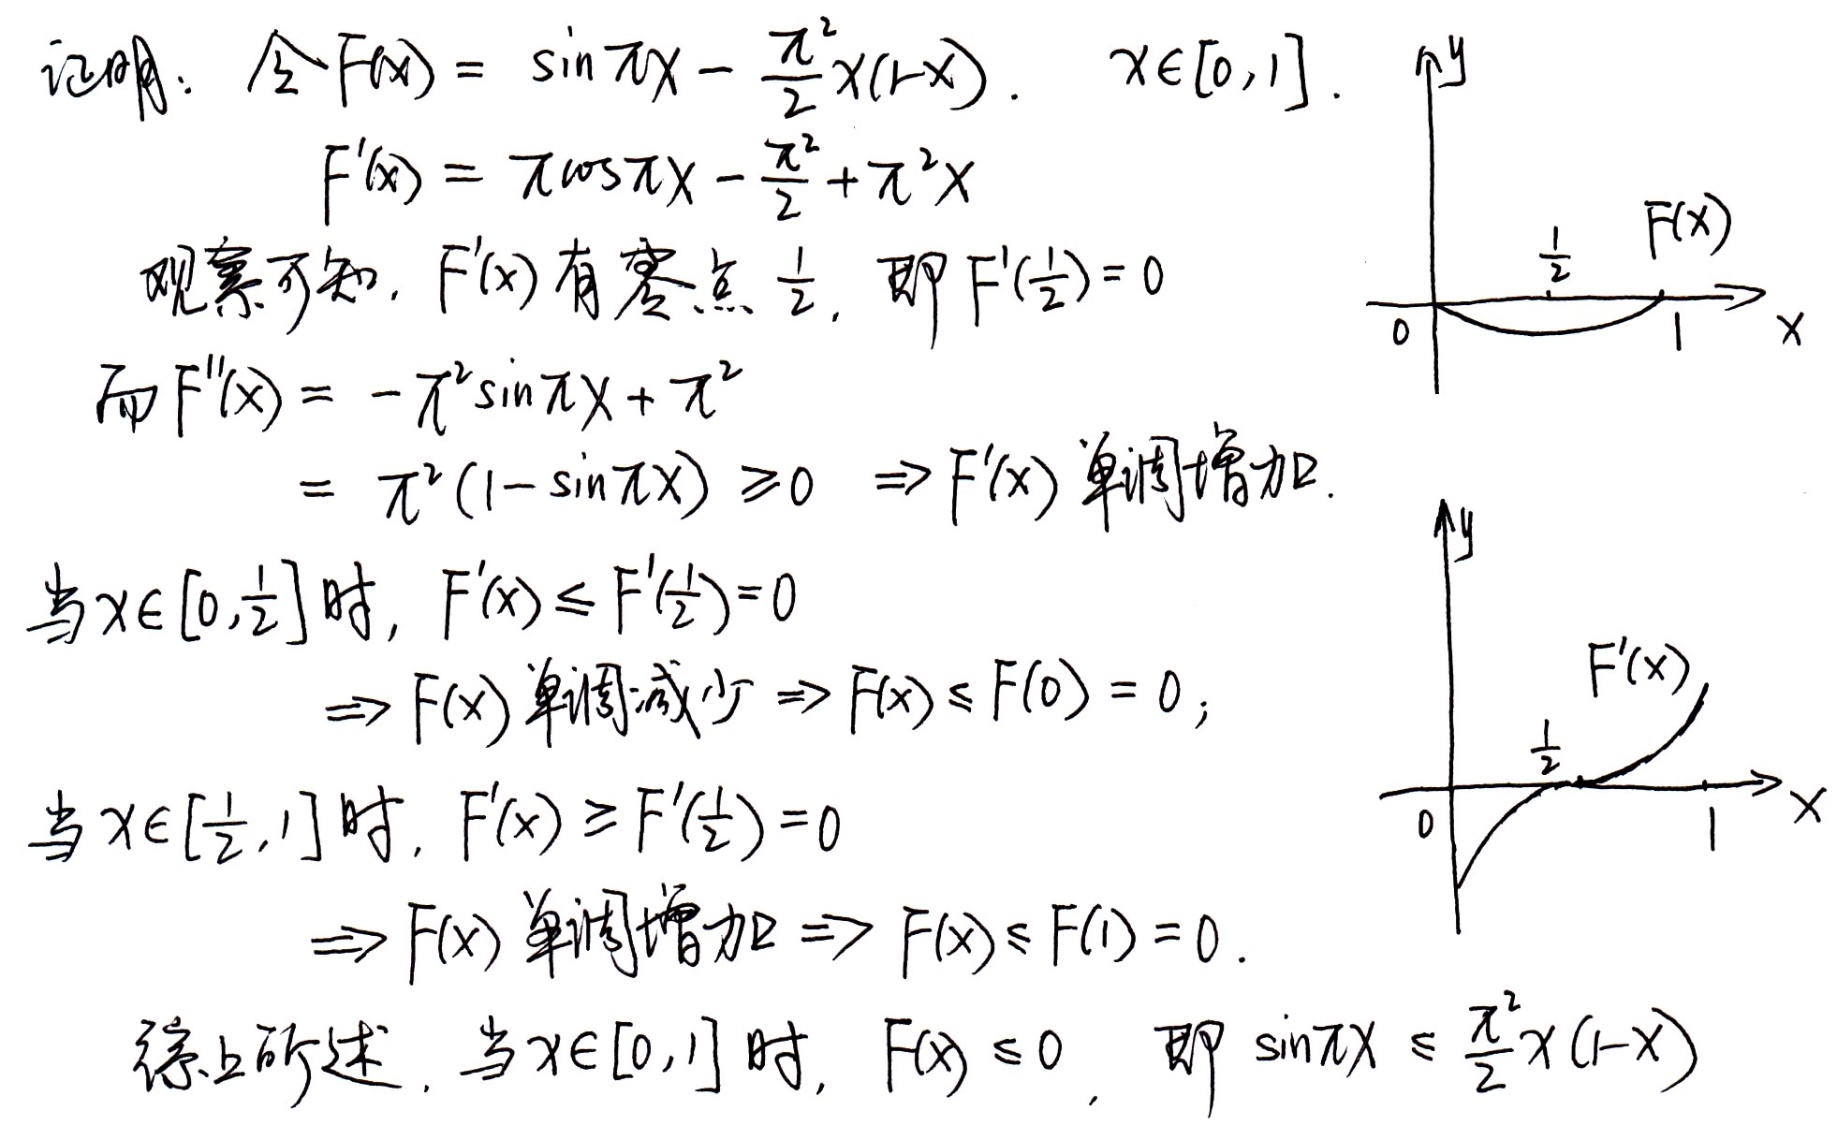 证明: 令 F(x) = sin πx − π²/2 x(1−x). x∈[0,1].
F'(x) = π cos πx − π²/2 + π²x
观察可知, F'(x) 有零点 1/2, 即 F'(1/2) = 0
而 F''(x) = −π² sin πx + π²
= π² (1 − sin πx) ≥ 0 ⇒ F'(x) 单调增加.
当 x∈[0, 1/2] 时, F'(x) ≤ F'(1/2) = 0
⇒ F(x) 单调减少 ⇒ F(x) ≤ F(0) = 0;
当 x∈[1/2, 1] 时, F'(x) ≥ F'(1/2) = 0
⇒ F(x) 单调增加 ⇒ F(x) ≤ F(1) = 0.
综上所述, 当 x∈[0,1] 时, F(x) ≤ 0, 即 sin πx ≤ π²/2 x(1−x)
y
F(x)
1/2
0 1 x
y
F'(x)
1/2
0 1 x